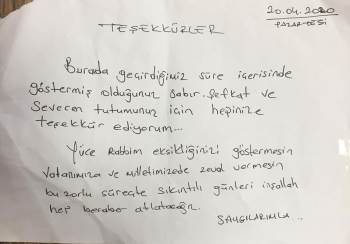 20.04.2020
PAZARTESİ
TEŞEKKÜRLER
Burada geçirdiğimiz süre içerisinde
göstermiş olduğunuz sabır, şefkat ve
sevecen tutumunuz için hepinize
teşekkür ediyorum...
Yüce Rabbim eksikliğinizi göstermesin
Vatanımıza ve milletimizede zeval vermesin
bu zorlu süreçte sıkıntılı günleri inşallah
hep beraber atlatacağız.
SAYGILARIMLA...